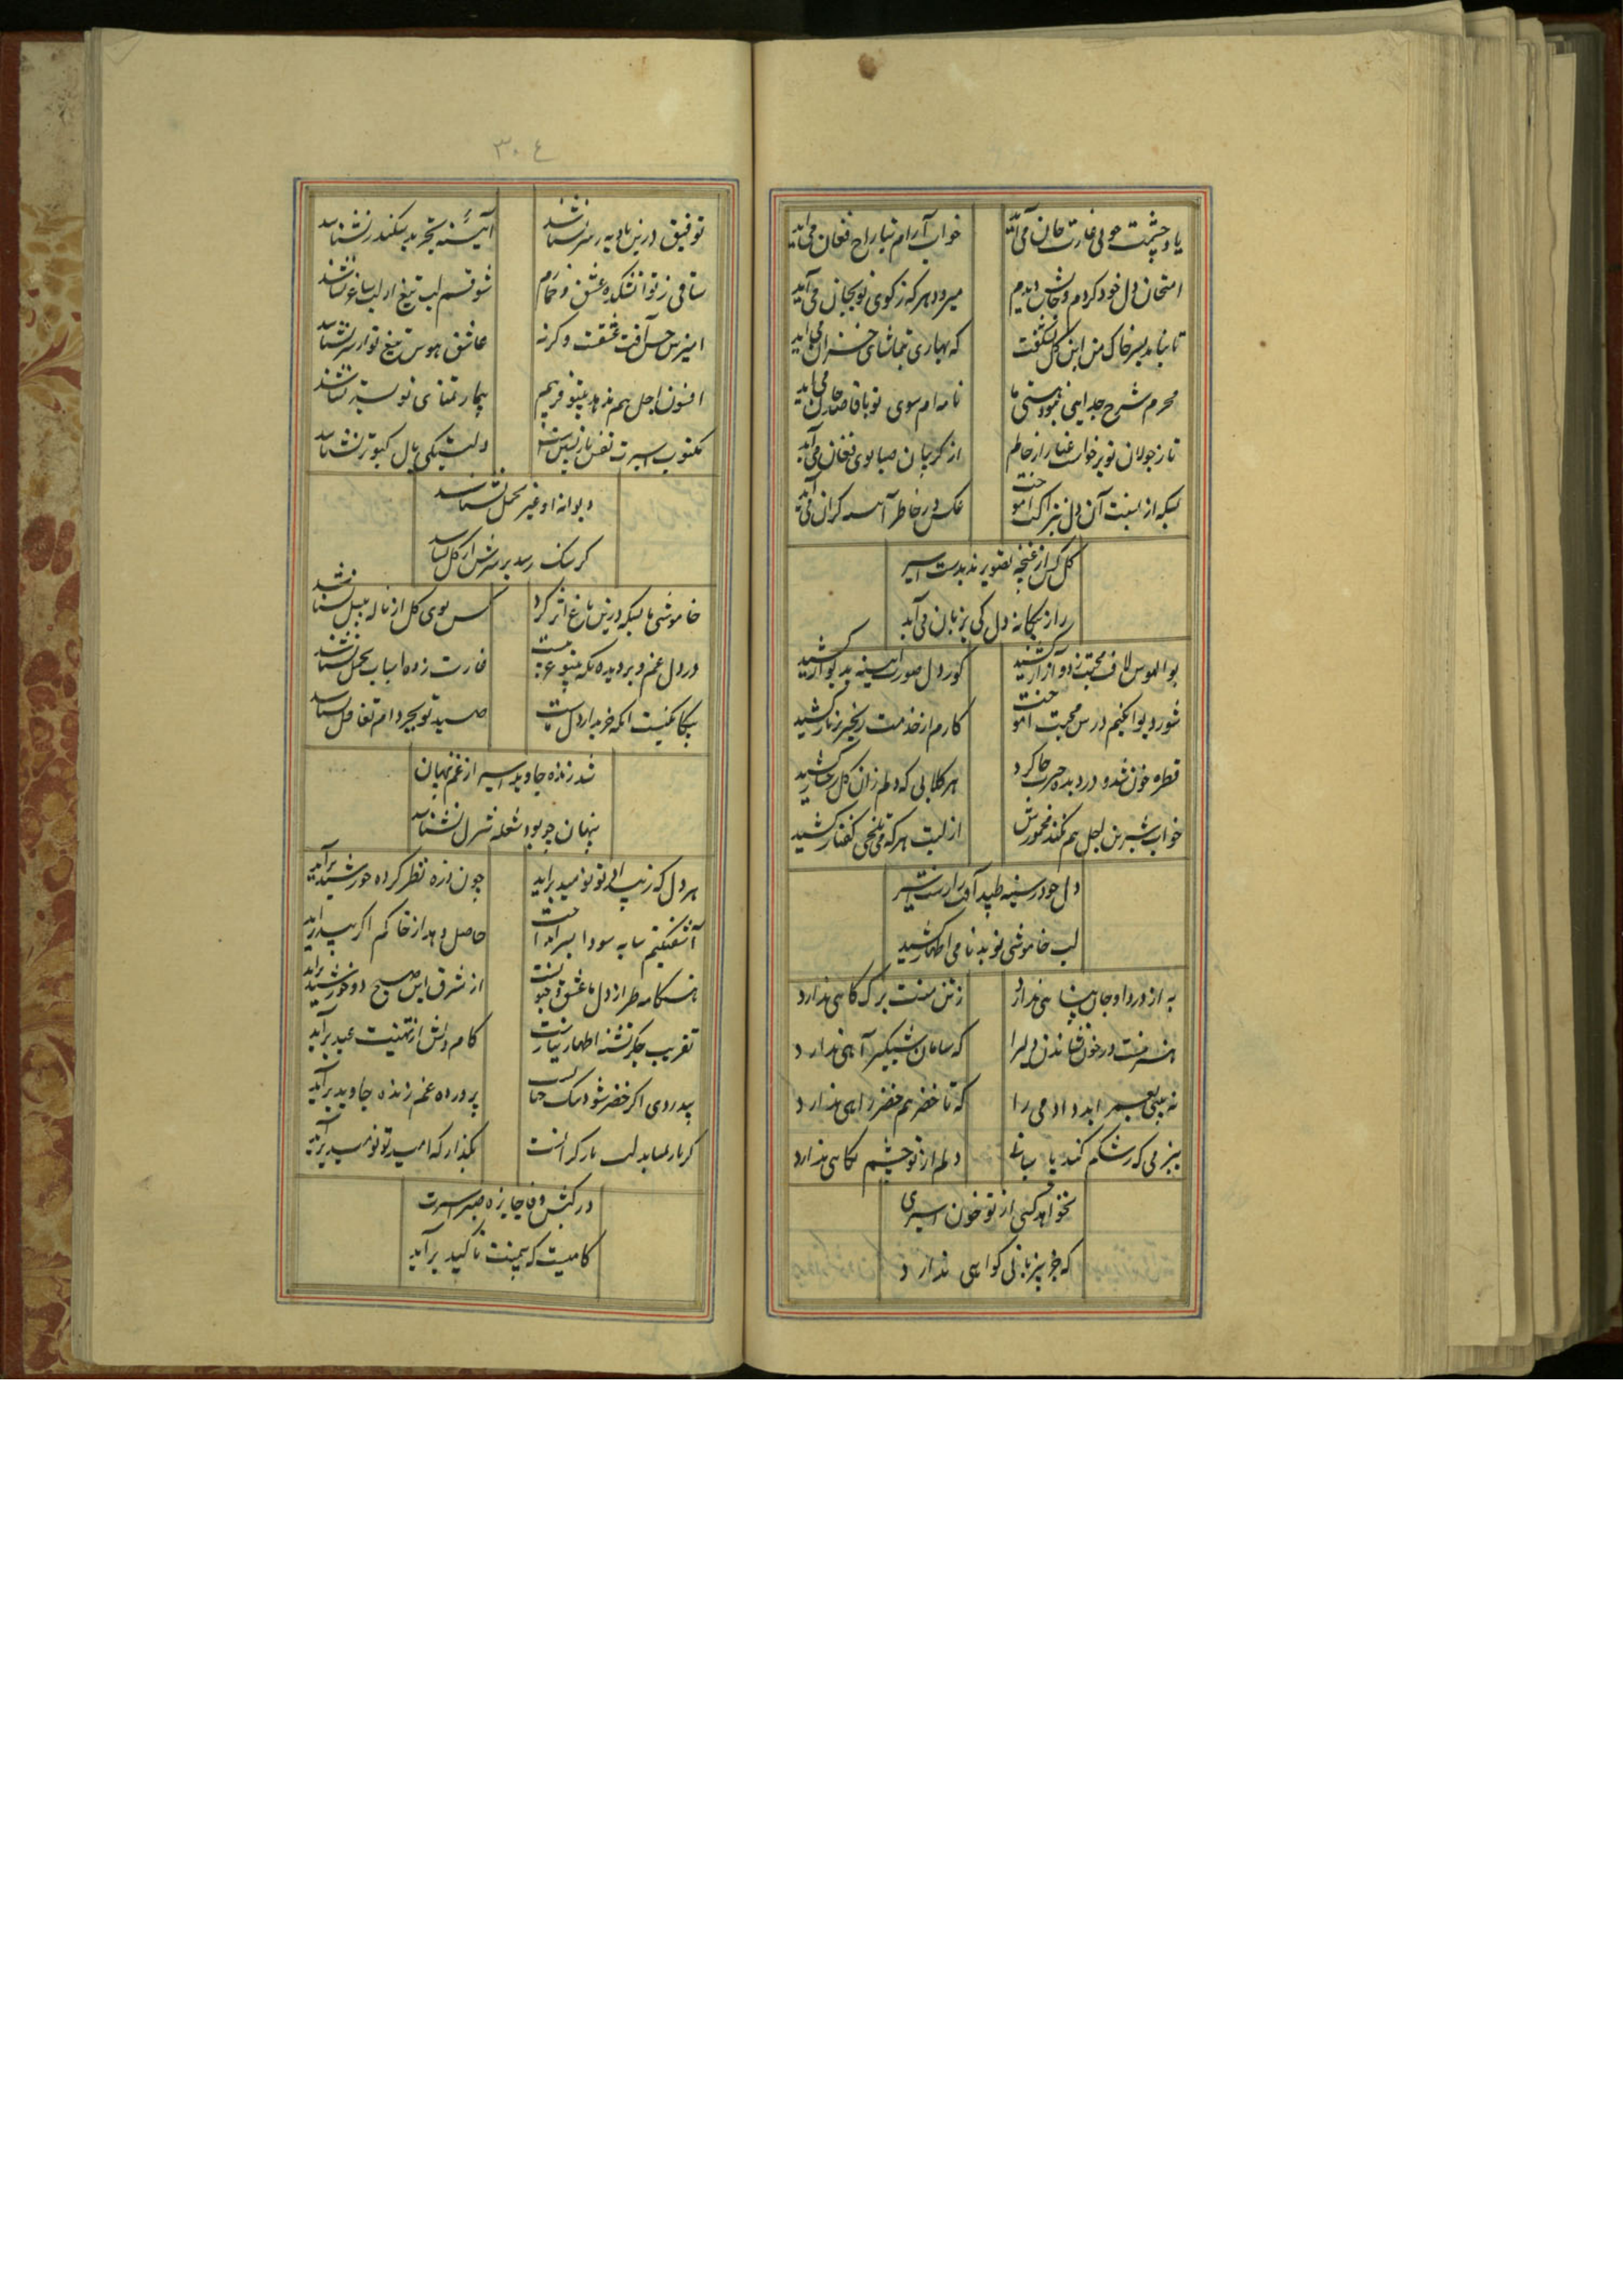 یاد چشمت چو پی غارت جان می آید
خواب آرام بتاراج فغان می آید
امتحان دل خود کردم و جانش دیدم
میرود هر که ز کوی تو بجان می آید
تا نیاید بسر خاک من این گل نشکفت
که بهاری بتماشای خزان می آید
محرم شرح جدایی نبود هستی ما
نامه ام سوی تو با قاصد جان می آید
تا ز جولان تو برخواست غبار از خاطر
از گریبان صبا بوی فغان می آید
بسکه از نسبت آن دل نزاکت آموخت
عکس در خاطر آینه گران می آید
گل کس از غنچه تصویر ندیدست اسیر
راز بیگانه دل کی بزبان می آید
بوالهوس لاف محبت زد و آزار کشید
کور دل صورت آیینه بدیوار کشید
شور دیوانگیم درس محبت آموخت
کارم از خدمت زنجیر بزنار کشید
قطره خون شد و در دیده حیرت جا کرد
هر گلابی که دلم زان گل رخسار کشید
خواب شیرین اجل هم نکند مخمورش
از لبت هر که می تلخی گفتار کشید
دل چو در سینه طپید آفت رازست اسیر
لب خاموشی تو بدنامی اظهار کشید
به از درد او جان پناهی ندارد
ز تن منت برگ کاهی ندارد
هنر نیست در خون نشاندن دلم را
که سامان شبگیر آهی ندارد
نه پیچم سر از دادمی را
که تا خضر هم خضر راهی ندارد
ببزمی که رشکم کند پاسبانی
دلم از تو چشم نگاهی ندارد
نخواهد کسی از تو خون اسیری
که جز بیزبانی گواهی ندارد
۳۰٤
توفیق درین بادیه رهبر نشناسد
آئینه تجرید سکندر نشناسد
ساقی ز تو آتشکده عشق و خمارم
شوقم لب تیغ از لب ساغر نشناسد
آمیزش حسن آفت عشقست وگرنه
عاشق هوس تیغ تو از سر نشناسد
افسون اجل هم ندهد بیتو فریبم
بیمار تمنای تو بستر نشناسد
مکتوب اسیرت نفس بازپسین است
دلبستگی بال کبوتر نشناسد
دیوانه او غیر تحمل نشناسد
گر سنگ رسد بر سرش از گل نشناسد
خاموشی ما بسکه درین باغ اثر کرد
کس بوی گل از ناله بلبل نشناسد
در دل غم و بر دیده نگه بیتو غریبست
غارت زده اسباب تجمل نشناسد
بیگانگیست آنکه خریدار دل ماست
صید تو بجز دام تغافل نشناسد
شد زنده جاوید اسیر از غم پنهان
پنهان چو بود شعله تنزل نشناسد
هر دل که ز بیداد تو نومید برآید
چون ذره نظر کرده خورشید برآید
آشفتگیم سایه سودا بسر انداخت
حاصل دهد از خاکم اگر بید برآید
هنگامه طراز دل ما عشق و جنونست
از شرق این صبح دو خورشید برآید
تقریب جگر تشنه اظهار نیازست
کام دلش از تهنیت عید برآید
بیدردی اگر خضر شود سنگ حیاتست
پرورده غم زنده جاوید برآید
بگذار که امید تو نومید برآید
در کیش وفا جایزه صبر اسیرت
کامیست که بی منت تاکید برآید